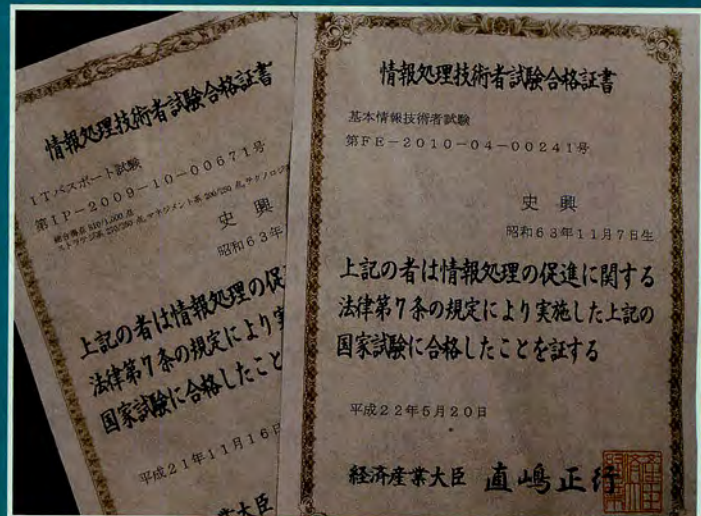 情報処理技術者試験合格証書
ITパスポート試験
第IP-2009-10-00671号
総合評点 810/1,000 点
史 興
昭和63年
上記の者は情報処理の促
法律第7条の規定により実
国家試験に合格したこと
平成21年11月16日
業大臣
情報処理技術者試験合格証書
基本情報技術者試験
第FE-2010-04-00241号
史 興
昭和63年11月7日生
上記の者は情報処理の促進に関する
法律第7条の規定により実施した上記の
国家試験に合格したことを証する
平成22年5月20日
経済産業大臣 直嶋正行